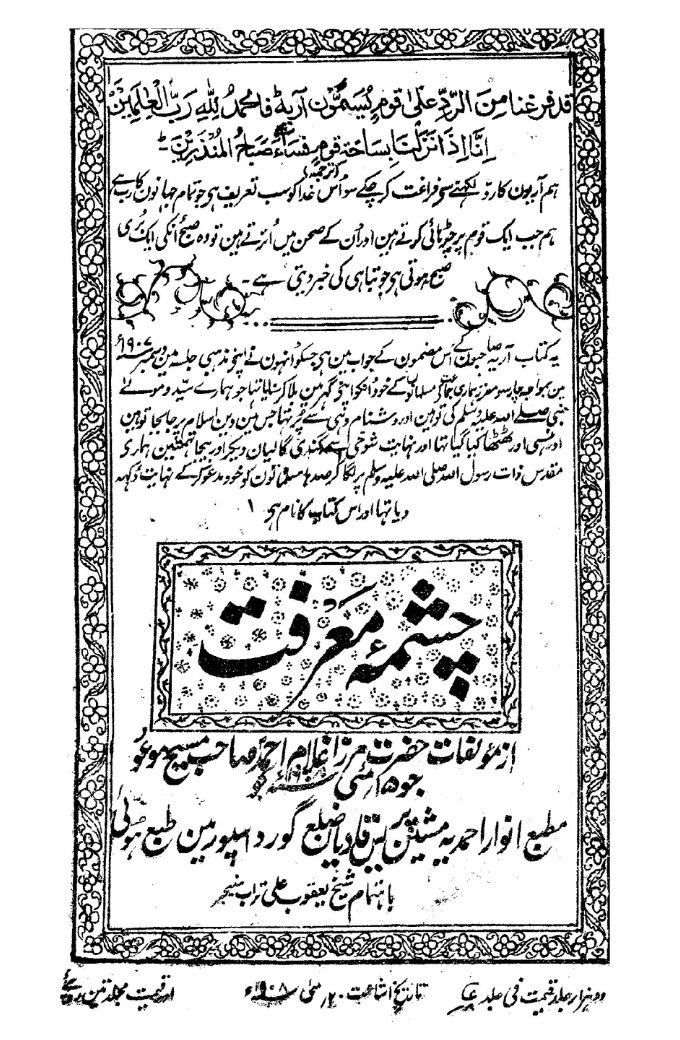 قد فرغنا من الرّدّ علیٰ قوم یُسمّون آریة فالحمدُ لِلّٰهِ رَبِّ الْعٰلَمِیْنَ
اِنَّا اِذَا نَزَلْنَا بِسَاحَةِ قَومٍ فَسَآءَ صَبَاحُ الْمُنْذَرِیْنَ
ترجمہ
ہم آریون کا رد لکھنے سی فراغت کر چکے سو اُس خدا کو سب تعریف ہی جو تمام جہانون کا رب ہے
ہم جب ایک قوم پر چڑہائی کرتے ہین اور اُن کے صحن مین اُترتے ہین تو وہ صبح اُنکی ایک بُری
صبح ہوتی ہی جو تباہی کی خبر دیتی ہے۔
یہ کتاب آریہ صاحبون کے اس مضمون کے جواب مین ہی جسکو انہون نے اپنو مذہبی جلسہ مین دسمبر ۱۹۰۷ء
مین چار سو معزز ہماری جماعت مسلمانون کے خود اپنو گہر مین بلا کر سنایا تہا جو ہمارے سیّد و مولےٰ
نبی صلے اللہ علیہ وسلم کی توہین اور دشنام دہی سے پُر تہا جس مین دین اسلام پر جا بجا توہین
اور ہنسی اور ٹھٹھا کیا گیا تہا اور نہایت شوخی سے گندی گالیان دیکر اور بیجا تہمتین ہماری
مقدس ذات رسول اللہ صلی اللہ علیہ وسلم پر لگا کر صدہا مسلمانون کو خود مدعو کر کے نہایت دُکہہ
دیا تہا اور اس کتاب کا نام ہی
چشمۂ معرفت
از مؤلفات حضرت مرزا غلام احمد صاحب مسیح موعود
جو ۱۵ مئی ۱۹۰۸ء کو
مطبع انوار احمدیہ مشین پریس قادیان ضلع گورداسپور مین طبع ہوئی
باہتمام شیخ یعقوب علی تراب منیجر
دو ہزار جلد قیمت فی جلد
تاریخ اشاعت ۲۰ مئی ۱۹۰۸ء
قیمت مجلد تین